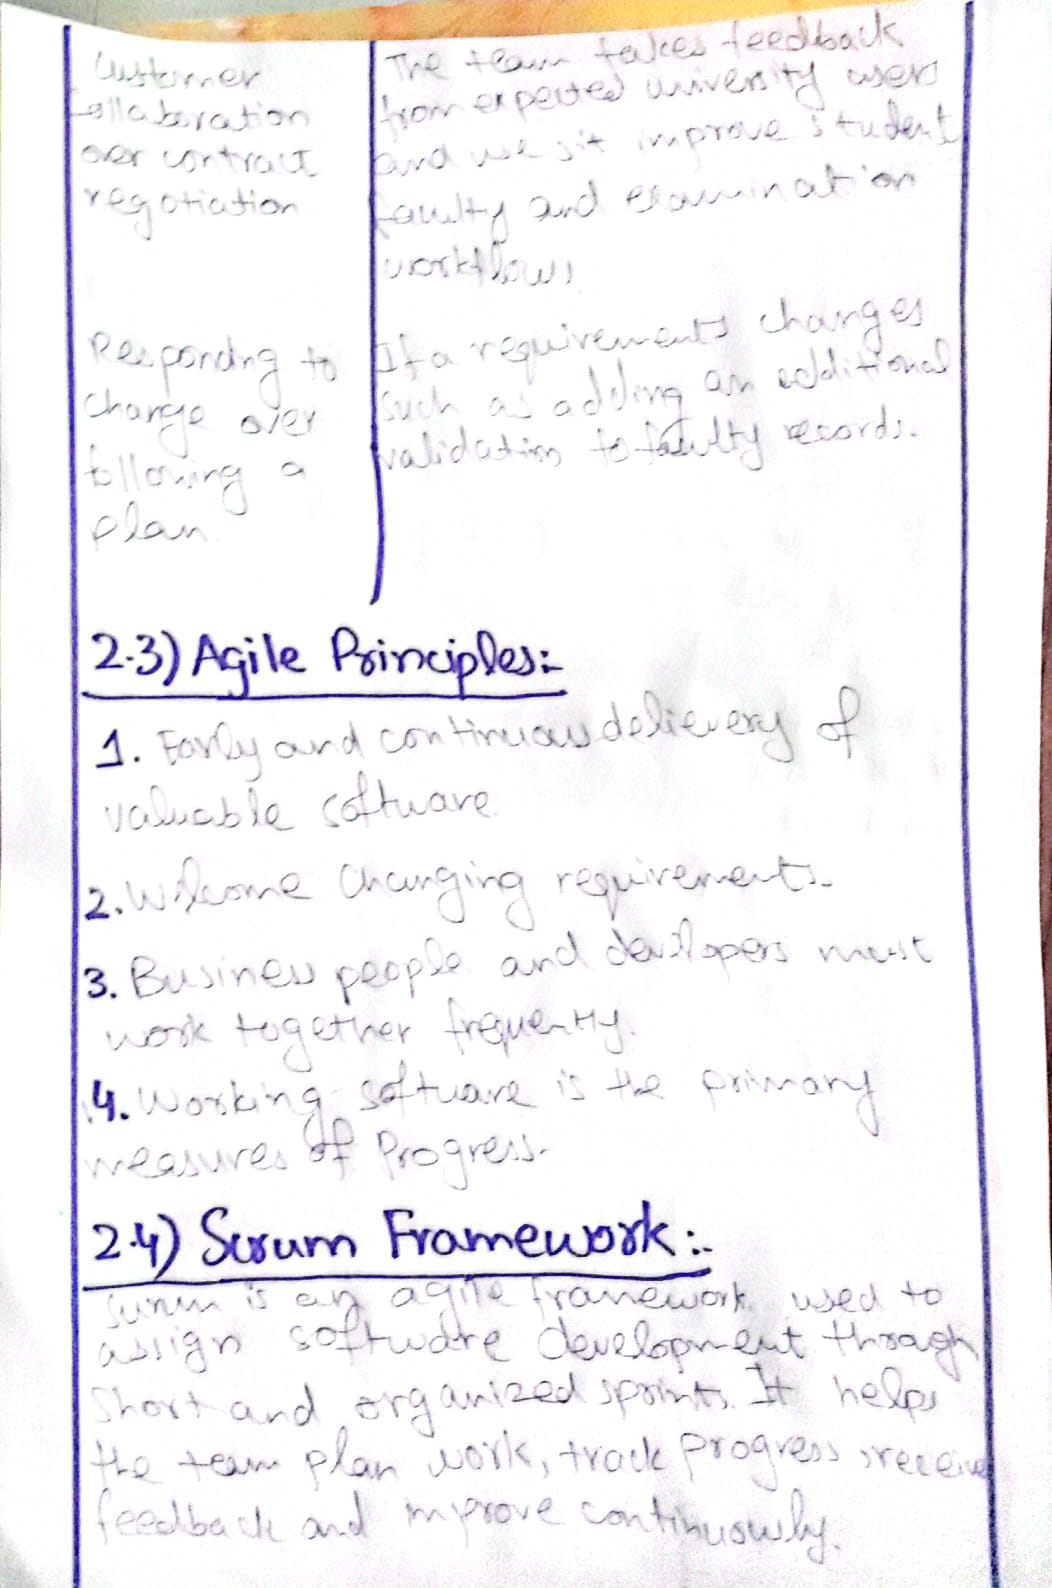 Customer
collaboration
over contract
negotiation
The team takes feedback
from expected university users
and use it improve student
faulty and examination
workflows
Responding to
change over
following a
plan
If a requirements changes
such as adding an additional
validation to faculty records.
2.3) Agile Principles:-
1. Early and continuous delievery of
valuable software
2. Welcome Changing requirements.
3. Business people and developers must
work together frequently.
4. Working software is the primary
measures of Progress.
2.4) Scrum Framework:-
Scrum is an agile framework used to
assign software development through
Short and organized sprints. It helps
the team plan work, track Progress, receive
feedback and improve continuously.